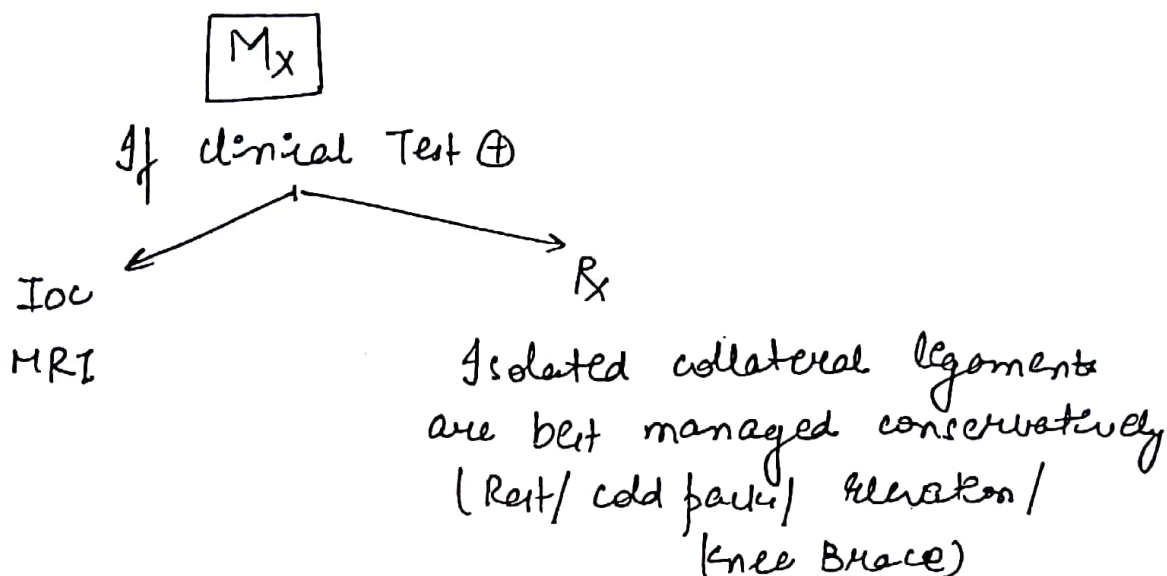 Mx
If clinical Test ⊕
IOC
MRI
Rx
Isolated collateral ligaments
are best managed conservatively
(Rest/ cold packs/ elevation/
Knee Brace)